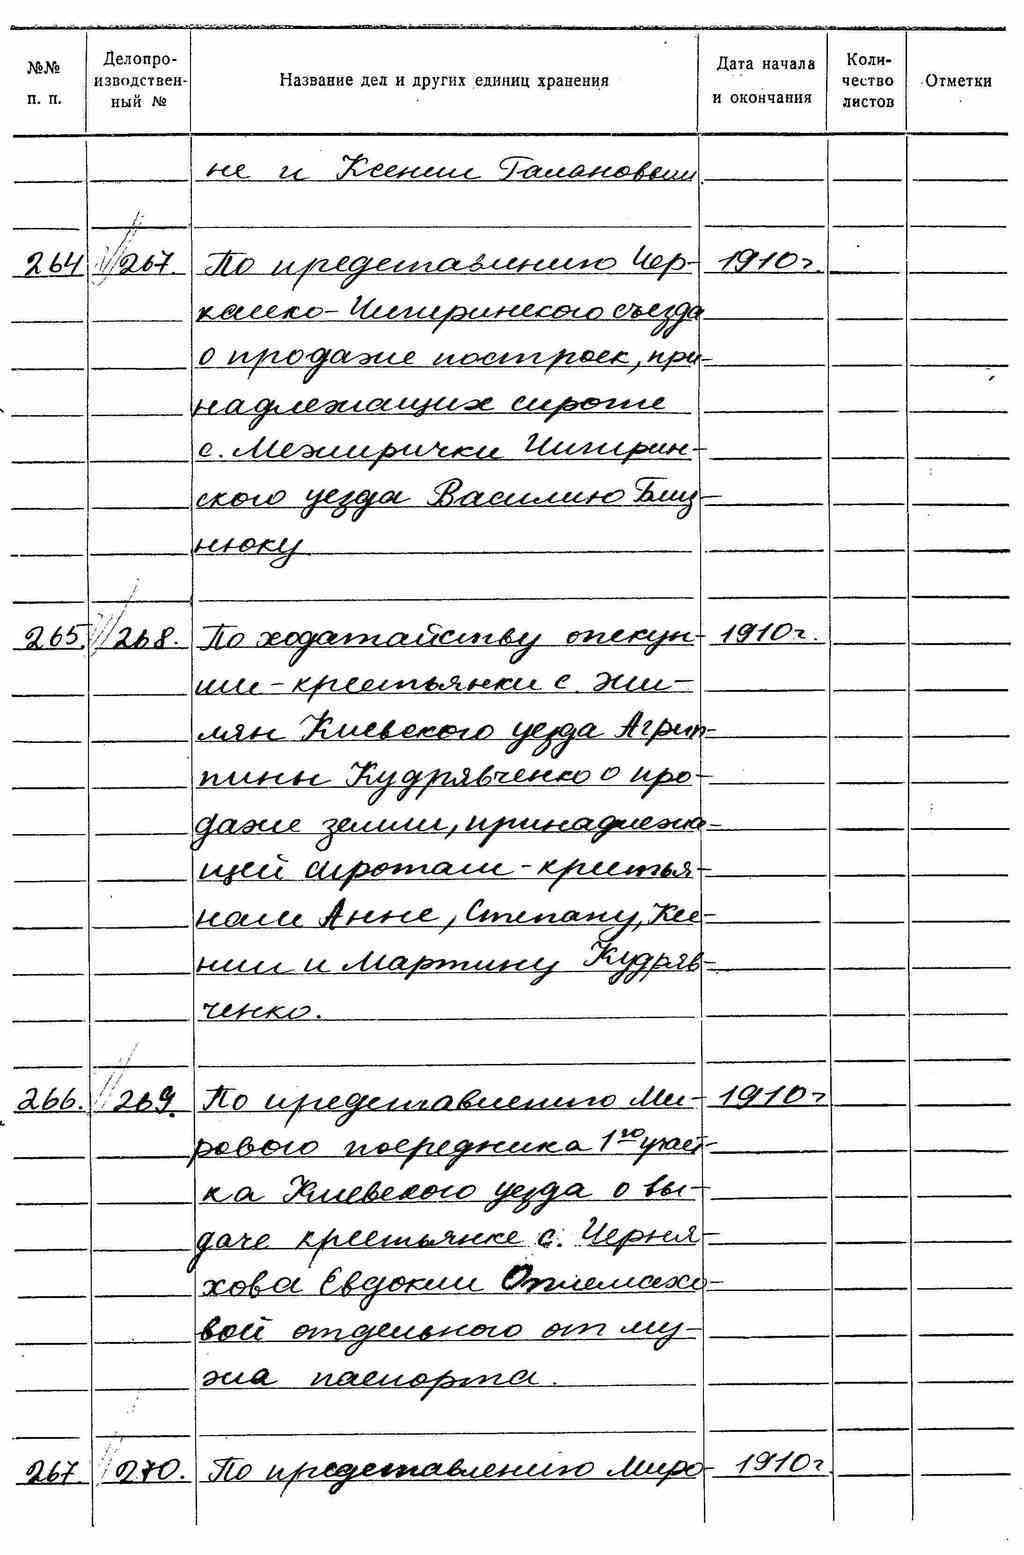 №№ п. п. Делопроизводственный № Название дел и других единиц хранения Дата начала и окончания Количество листов Отметки
не и Ксении Галановым.
264 267. По представлению Чер- 1910г.
касско-Чигиринского съезда
о продаже построек, при-
надлежащих сироте
с. Межирички Чигирин-
ского уезда Василию Блиц-
нюку
265. 268. По ходатайству опекун- 1910г.
ши-крестьянки с. Жи-
лян Киевского уезда Агрип-
пины Кудрявченко о про-
даже земли, принадлежа-
щей сиротам-крестья-
нам Анне, Степану, Ксе-
нии и Мартину Кудряв-
ченко.
266. 269. По представлению Ми- 1910г
рового посредника 1го участ-
ка Киевского уезда о вы-
даче крестьянке с. Черня-
хова Евдокии
вой отдельного от му-
жа паспорта.
267. 270. По представлению Миро- 1910г.